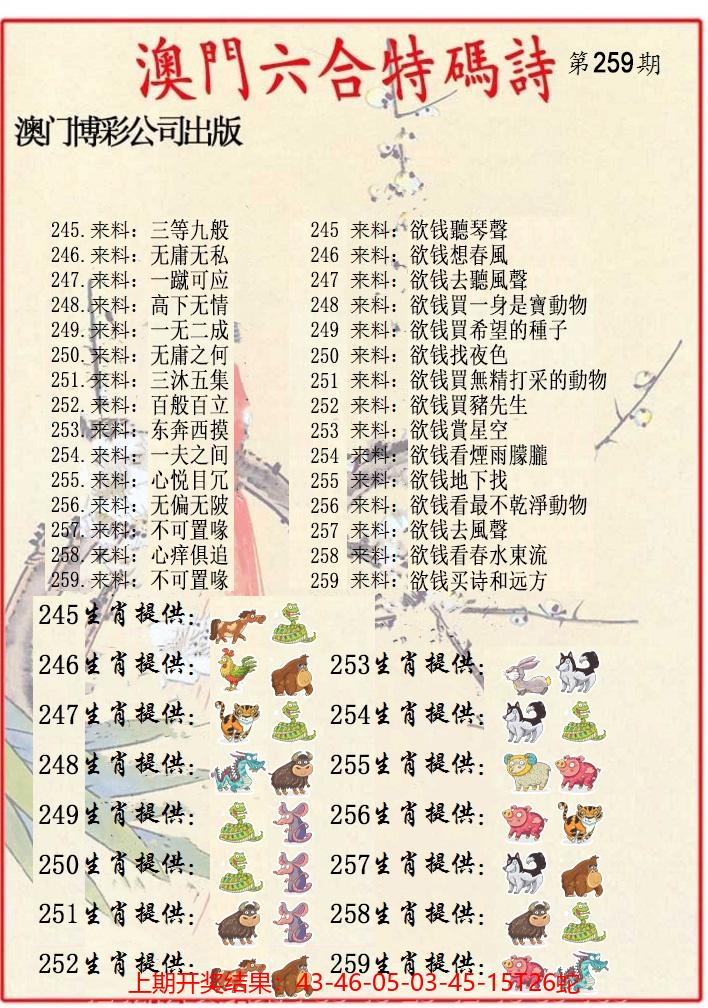 澳門六合特碼詩 第259期
澳门博彩公司出版
245. 来料：三等九般
246. 来料：无庸无私
247. 来料：一蹴可应
248. 来料：高下无情
249. 来料：一无二成
250. 来料：无庸之何
251. 来料：三沐五集
252. 来料：百般百立
253. 来料：东奔西摸
254. 来料：一夫之间
255. 来料：心悦目冗
256. 来料：无偏无陂
257. 来料：不可置喙
258. 来料：心痒俱追
259. 来料：不可置喙
245 来料：欲钱聽琴聲
246 来料：欲钱想春風
247 来料：欲钱去聽風聲
248 来料：欲钱買一身是寶動物
249 来料：欲钱買希望的種子
250 来料：欲钱找夜色
251 来料：欲钱買無精打采的動物
252 来料：欲钱買豬先生
253 来料：欲钱賞星空
254 来料：欲钱看煙雨朦朧
255 来料：欲钱地下找
256 来料：欲钱看最不乾淨動物
257 来料：欲钱去風聲
258 来料：欲钱看春水東流
259 来料：欲钱买诗和远方
245生肖提供：
246生肖提供：
247生肖提供：
248生肖提供：
249生肖提供：
250生肖提供：
251生肖提供：
252生肖提供：
253生肖提供：
254生肖提供：
255生肖提供：
256生肖提供：
257生肖提供：
258生肖提供：
259生肖提供：
上期开奖结果：43-46-05-03-45-15T26蛇